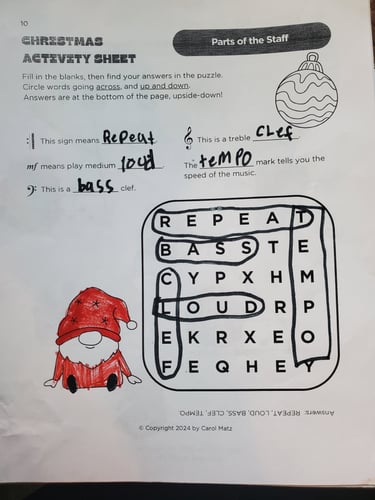 10
CHRISTMAS
ACTIVITY SHEET
Parts of the Staff
Fill in the blanks, then find your answers in the puzzle.
Circle words going across, and up and down.
Answers are at the bottom of the page, upside-down!
This sign means Repeat
This is a treble Clef
mf means play medium loud
The tEMPO mark tells you the
speed of the music.
This is a bass clef.
R E P E A T
B A S S T E
C Y P X H M
L O U D R P
E K R X E O
F E Q H E Y
Answers: REPEAT, LOUD, BASS, CLEF, TEMPO
© Copyright 2024 by Carol Matz